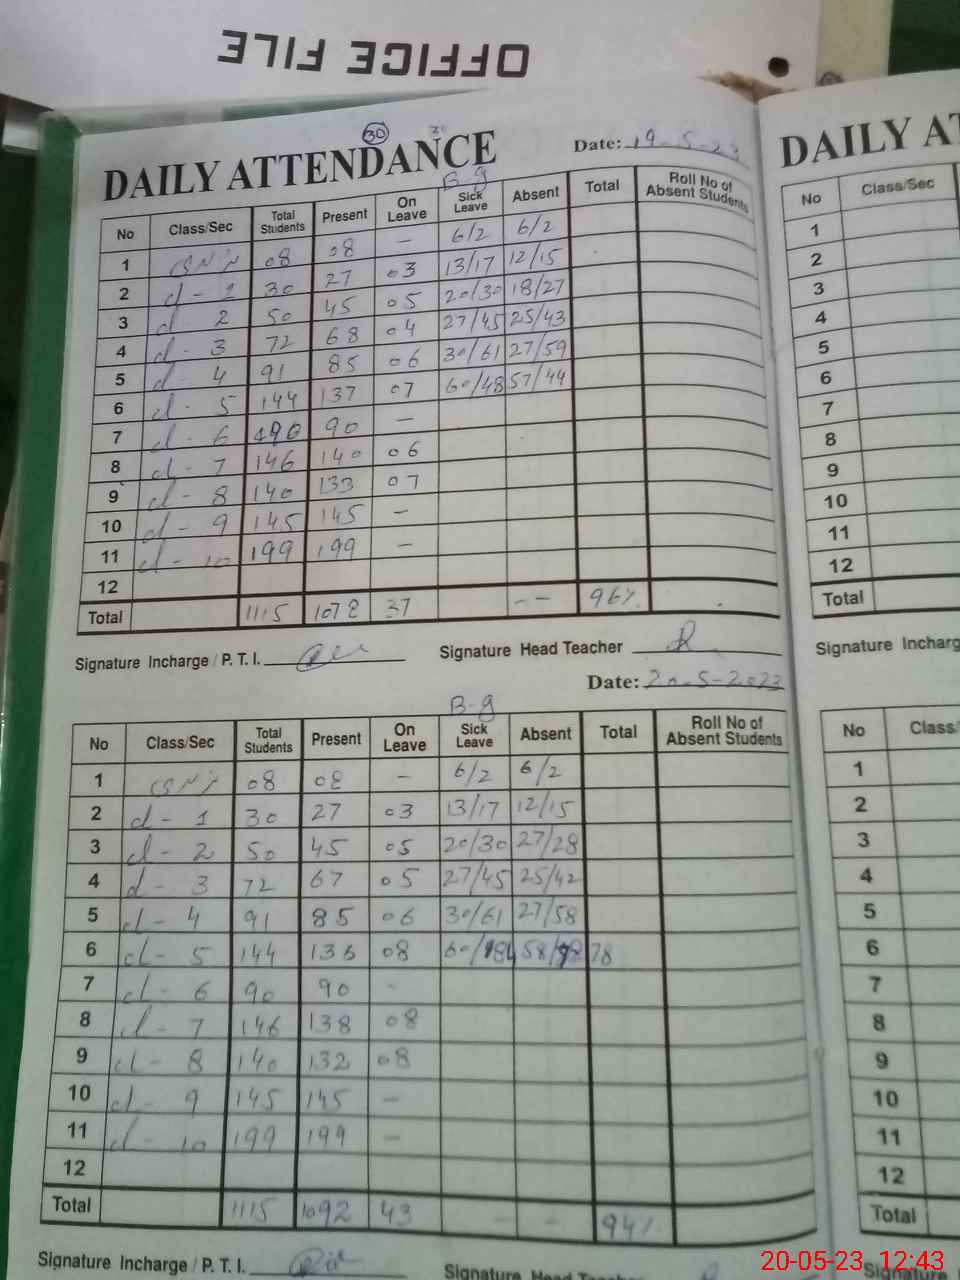 OFFICE FILE
30 31
DAILY ATTENDANCE Date: 19-5-23
B-g
No Class/Sec Total Students Present On Leave Sick Leave Absent Total Roll No of Absent Students
1 نرسری 08 08 — 6/2 6/2
2 cl - 1 30 27 03 13/17 12/15
3 cl - 2 50 45 05 20/30 18/27
4 cl - 3 72 68 04 27/45 25/43
5 cl - 4 91 85 06 30/61 27/59
6 cl - 5 144 137 07 60/48 57/44
7 cl - 6 90 —
8 cl - 7 146 140 06
9 cl - 8 140 133 07
10 cl - 9 145 145 —
11 cl - 10 199 199 —
12
Total 1115 1078 37 -- 96%
Signature Incharge / P. T. I. Signature Head Teacher
Date: 20-5-2023
B-g
No Class/Sec Total Students Present On Leave Sick Leave Absent Total Roll No of Absent Students
1 نرسری 08 08 — 6/2 6/2
2 cl - 1 30 27 03 13/17 12/15
3 cl - 2 50 45 05 20/30 27/28
4 cl - 3 72 67 05 27/45 25/42
5 cl - 4 91 85 06 30/61 27/58
6 cl - 5 144 136 08 60/84 58/78
7 cl - 6 90 90 -
8 cl - 7 146 138 08
9 cl - 8 140 132 08
10 cl - 9 145 145 —
11 cl - 10 199 199 —
12
Total 1115 1092 43 - - 94%
Signature Incharge / P. T. I. Signature Head Teacher
DAILY AT
No Class/Sec
1
2
3
4
5
6
7
8
9
10
11
12
Total
Signature Incharg
No Class
1
2
3
4
5
6
7
8
9
10
11
12
Total
Signature In
20-05-23 12:43